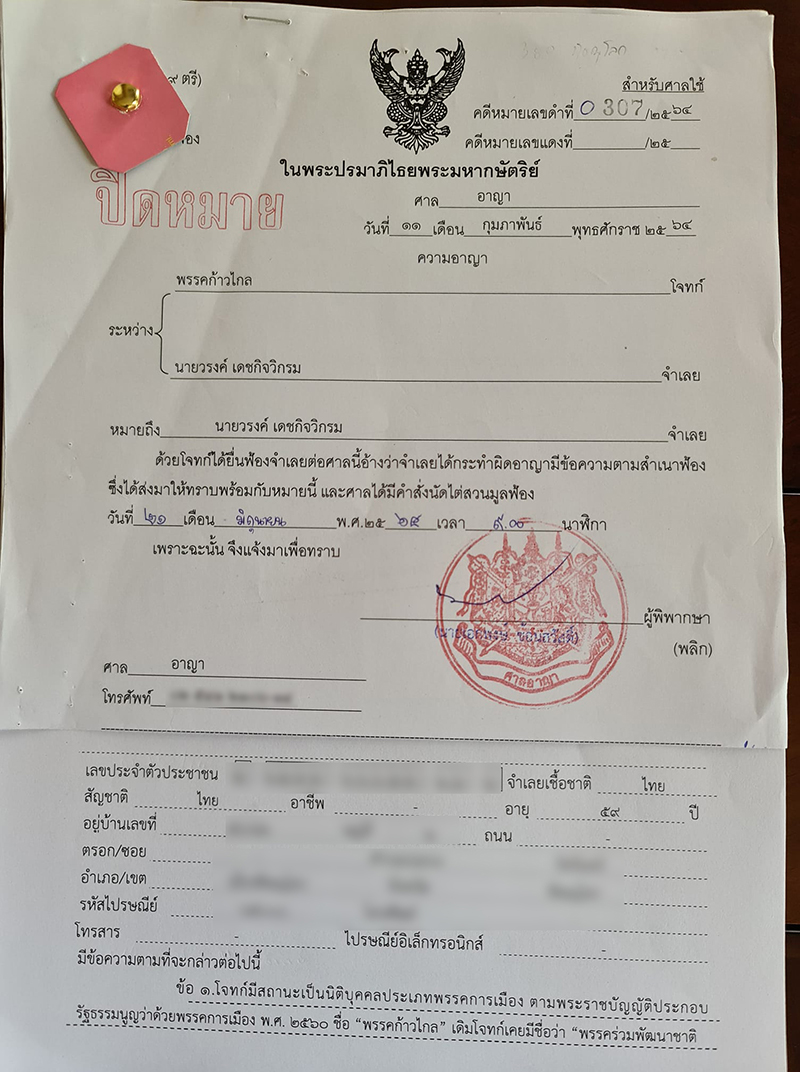 ๙ ตรี)
สำหรับศาลใช้
คดีหมายเลขดำที่ ๐ 307/๒๕๖๔
อง
คดีหมายเลขแดงที่ /๒๕
ในพระปรมาภิไธยพระมหากษัตริย์
ปิดหมาย
ศาล อาญา
วันที่ ๑๑ เดือน กุมภาพันธ์ พุทธศักราช ๒๕ ๖๔
ความอาญา
พรรคก้าวไกล โจทก์
ระหว่าง
นายวรงค์ เดชกิจวิกรม จำเลย
หมายถึง นายวรงค์ เดชกิจวิกรม จำเลย
ด้วยโจทก์ได้ยื่นฟ้องจำเลยต่อศาลนี้อ้างว่าจำเลยได้กระทำผิดอาญามีข้อความตามสำเนาฟ้อง
ซึ่งได้ส่งมาให้ทราบพร้อมกับหมายนี้ และศาลได้มีคำสั่งนัดไต่สวนมูลฟ้อง
วันที่ ๒๑ เดือน มิถุนายน พ.ศ.๒๕ ๖๔ เวลา ๙.๐๐ นาฬิกา
เพราะฉะนั้น จึงแจ้งมาเพื่อทราบ
ผู้พิพากษา
(พลิก)
ศาลอาญา
ศาล อาญา
โทรศัพท์
เลขประจำตัวประชาชน จำเลยเชื้อชาติ ไทย
สัญชาติ ไทย อาชีพ - อายุ ๕๙ ปี
อยู่บ้านเลขที่ ถนน -
ตรอก/ซอย
อำเภอ/เขต
รหัสไปรษณีย์
โทรสาร - ไปรษณีย์อิเล็กทรอนิกส์ -
มีข้อความตามที่จะกล่าวต่อไปนี้
ข้อ ๑.โจทก์มีสถานะเป็นนิติบุคคลประเภทพรรคการเมือง ตามพระราชบัญญัติประกอบ
รัฐธรรมนูญว่าด้วยพรรคการเมือง พ.ศ. ๒๕๖๐ ชื่อ “พรรคก้าวไกล” เดิมโจทก์เคยมีชื่อว่า “พรรคร่วมพัฒนาชาติ